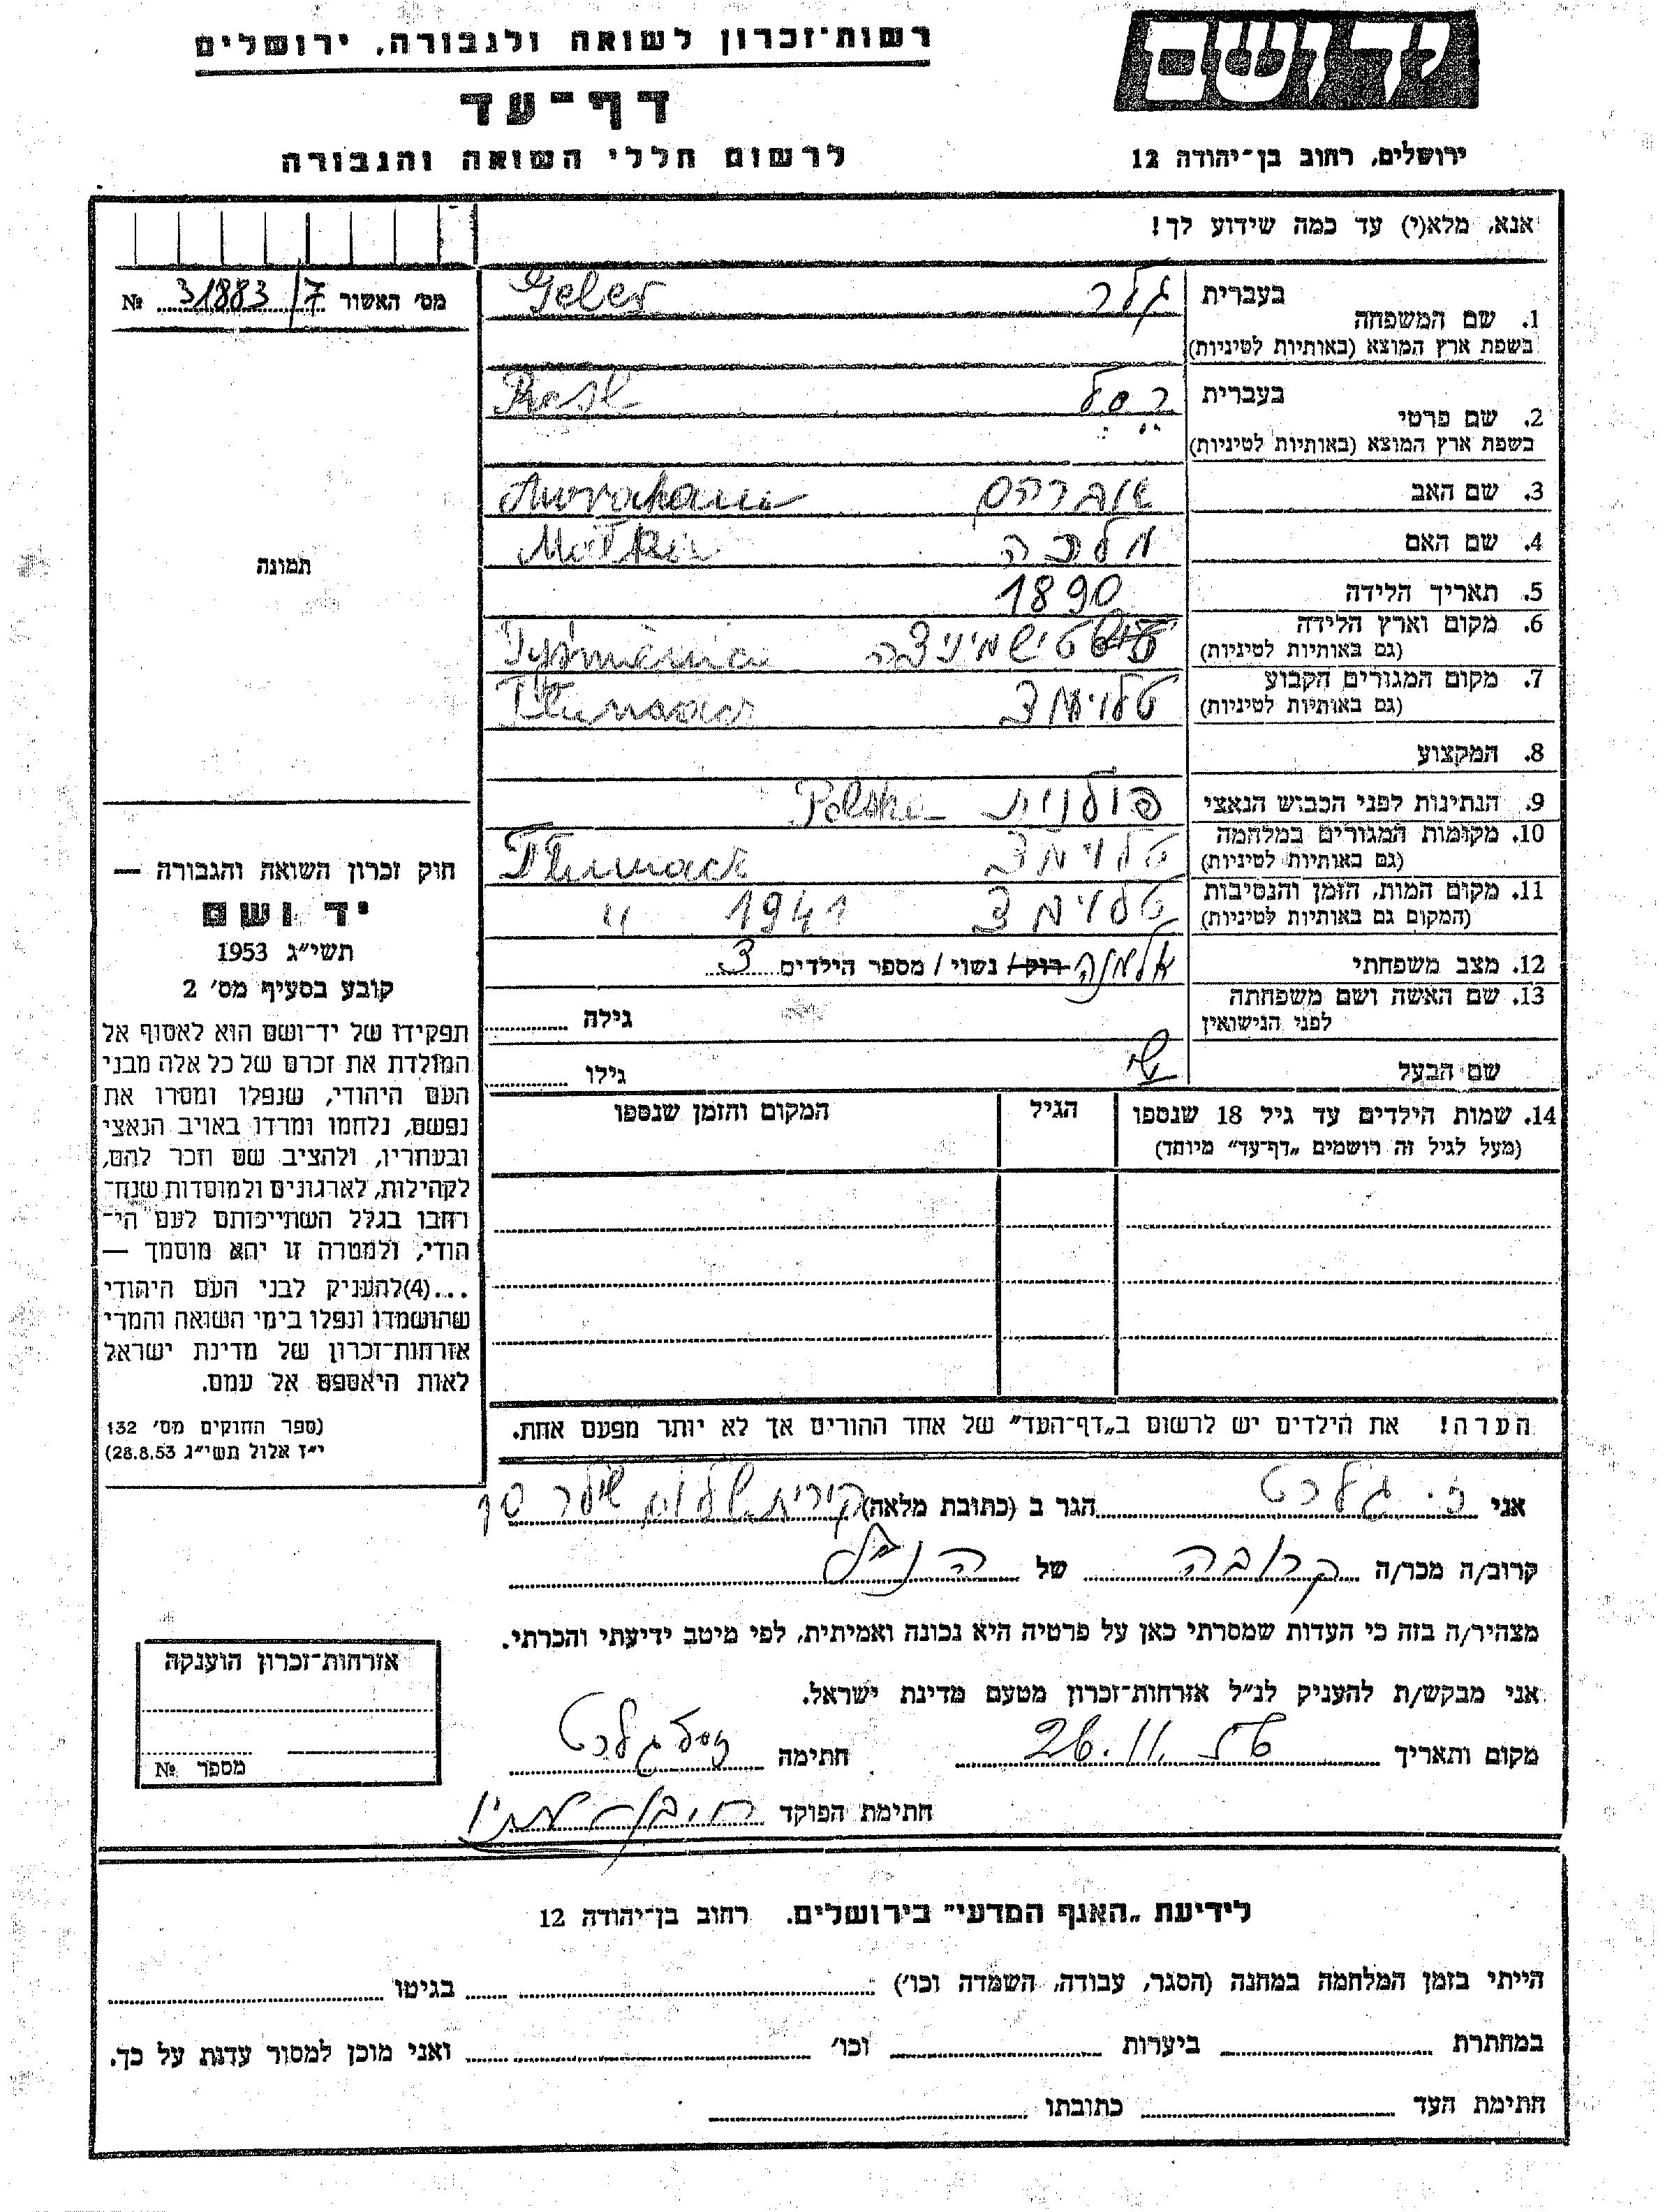 רשות־זכרון לשואה ולגבורה, ירושלים
דף־עד
לרשום חללי השואה והגבורה
יד ושם
ירושלים, רחוב בן־יהודה 12
אנא, מלא(י) עד כמה שידוע לך!
מס׳ האשור 31883/7 №
תמונה
1. שם המשפחה בעברית גלר Geler
בשפת ארץ המוצא (באותיות לטיניות)
2. שם פרטי בעברית רסל Resl
בשפת ארץ המוצא (באותיות לטיניות)
3. שם האב אברהם Awraham
4. שם האם מלכה Malka
5. תאריך הלידה 1890
6. מקום וארץ הלידה טישמיניצה
(גם באותיות לטיניות)
7. מקום המגורים הקבוע טלוימצ
(גם באותיות לטיניות)
8. המקצוע
9. הנתינות לפני הכבוש הנאצי פולנית Polska
10. מקומות המגורים במלחמה טלוימצ Tlumacz
(גם באותיות לטיניות)
11. מקום המות, הזמן והנסיבות טלוימצ 1941 "
(המקום גם באותיות לטיניות)
12. מצב משפחתי אלמנה רוק / נשוי / מספר הילדים 3
13. שם האשה ושם משפחתה
לפני הנישואין
גילה
שם הבעל
גילו
14. שמות הילדים עד גיל 18 שנספו
(מעל לגיל זה רושמים „דף־עד" מיוחד)
הגיל
המקום והזמן שנספו
חוק זכרון השואה והגבורה —
יד ושם
תשי״ג 1953
קובע בסעיף מס׳ 2
תפקידו של יד־ושם הוא לאסוף אל
המולדת את זכרם של כל אלה מבני
העם היהודי, שנפלו ומסרו את
נפשם, נלחמו ומרדו באויב הנאצי
ובעוזריו, ולהציב שם וזכר להם,
לקהילות, לארגונים ולמוסדות שנח־
רחבו בגלל השתייכותם לעם הי־
הודי, ולמטרה זו יהא מוסמך —
...(4)להעניק לבני העם היהודי
שהושמדו ונפלו בימי השואה והמרי
אזרחות־זכרון של מדינת ישראל
לאות היאספם אל עמם.
(ספר החוקים מס׳ 132
י״ז אלול תשי״ג 28.8.53)
הערה! את הילדים יש לרשום ב„דף־העד" של אחד ההורים אך לא יותר מפעם אחת.
אני ז. גלרט הגר ב (כתובת מלאה) קרית שלום
קרוב/ה מכר/ה קרובה של הנ״ל
מצהיר/ה בזה כי העדות שמסרתי כאן על פרטיה היא נכונה ואמיתית, לפי מיטב ידיעתי והכרתי.
אני מבקש/ת להעניק לנ״ל אזרחות־זכרון מטעם מדינת ישראל.
מקום ותאריך 26.11. חתימה גלרט
חתימת הפוקד
אזרחות־זכרון הוענקה
מספר №
לידיעת „האגף המדעי" בירושלים. רחוב בן־יהודה 12
הייתי בזמן המלחמה במחנה (הסגר, עבודה, השמדה וכו׳) בגיטו
במחתרת ביערות וכו׳ ואני מוכן למסור עדות על כך.
חתימת העד כתובתו